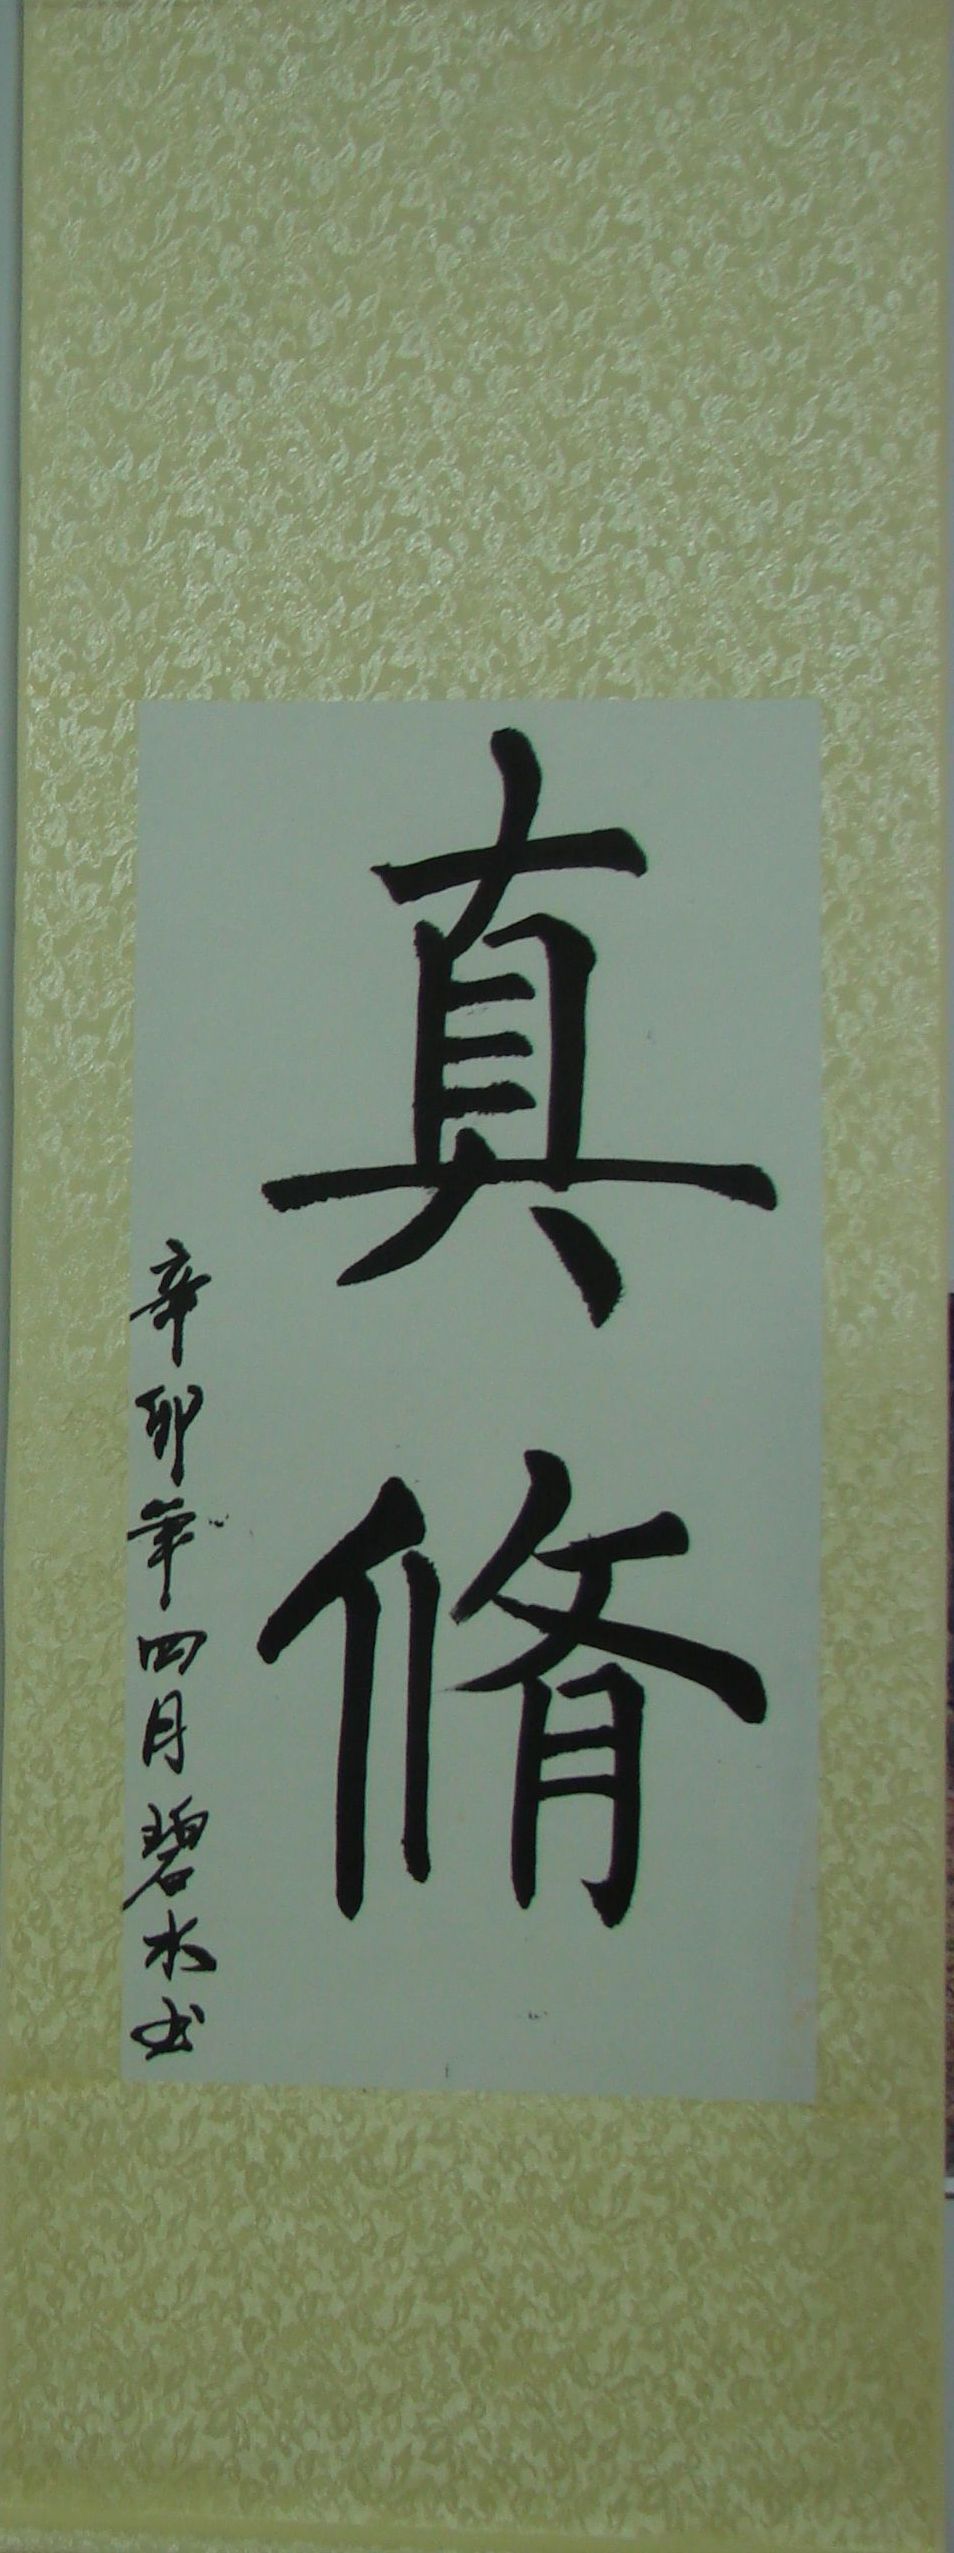 真脩
辛卯年四月碧水书